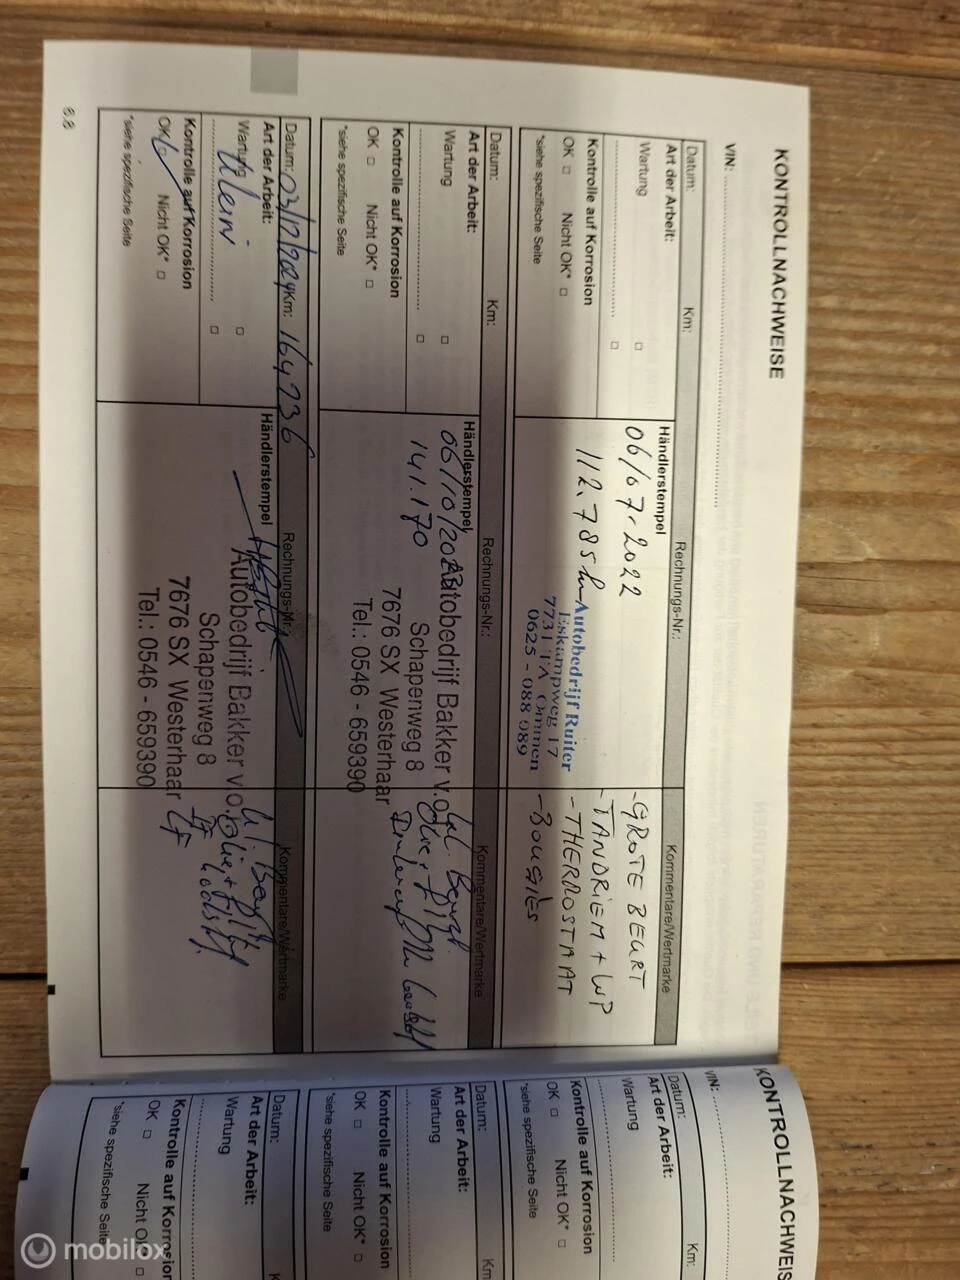 KONTROLLNACHWEISE
VIN:
Datum: Km: Rechnungs-Nr.: Kommentare/Wertmarke
Art der Arbeit: Händlerstempel
Wartung □
□
Kontrolle auf Korrosion
OK □ Nicht OK* □
*siehe spezifische Seite
06/07-2022
112.785
Autobedrijf Ruiter
Eskampweg 17
7731 TA Ommen
0625-088089
-GROTE BEURT
-TANDRIEM + WP
-THERMOSTAAT
-BOUGIES
Datum: Km: Rechnungs-Nr.: Kommentare/Wertmarke
Art der Arbeit: Händlerstempel
Wartung □
□
Kontrolle auf Korrosion
OK □ Nicht OK* □
*siehe spezifische Seite
06/10/2023
141.170
Autobedrijf Bakker v.o.f.
Schapenweg 8
7676 SX Westerhaar
Tel.: 0546 - 659390
Datum: Km: 164736 Rechnungs-Nr.: Kommentare/Wertmarke
Art der Arbeit: Händlerstempel
Wartung □
Klein □
Kontrolle auf Korrosion
OK □ Nicht OK* □
*siehe spezifische Seite
Autobedrijf Bakker v.o.f.
Schapenweg 8
7676 SX Westerhaar
Tel.: 0546 - 659390
6.8
KONTROLLNACHWEIS
VIN:
Datum: Km:
Art der Arbeit:
Wartung
Kontrolle auf Korrosion
OK □ Nicht OK* □
*siehe spezifische Seite
Datum: Km:
Art der Arbeit:
Wartung
Kontrolle auf Korrosion
OK □ Nicht OK* □
*siehe spezifische Seite
Datum:
Art der Arbeit:
Wartung
Kontrolle auf Korrosion
OK □ Nicht OK* □
*siehe spezifische Seite
mobilox